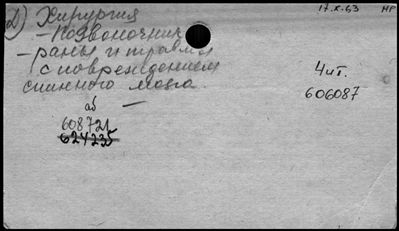 2) Хирургия
17.X.63
МР
- Позвоночник
- раны и травмы
с повреждением
спинного мозга.
4 ит.
606087
аб
608721
624235